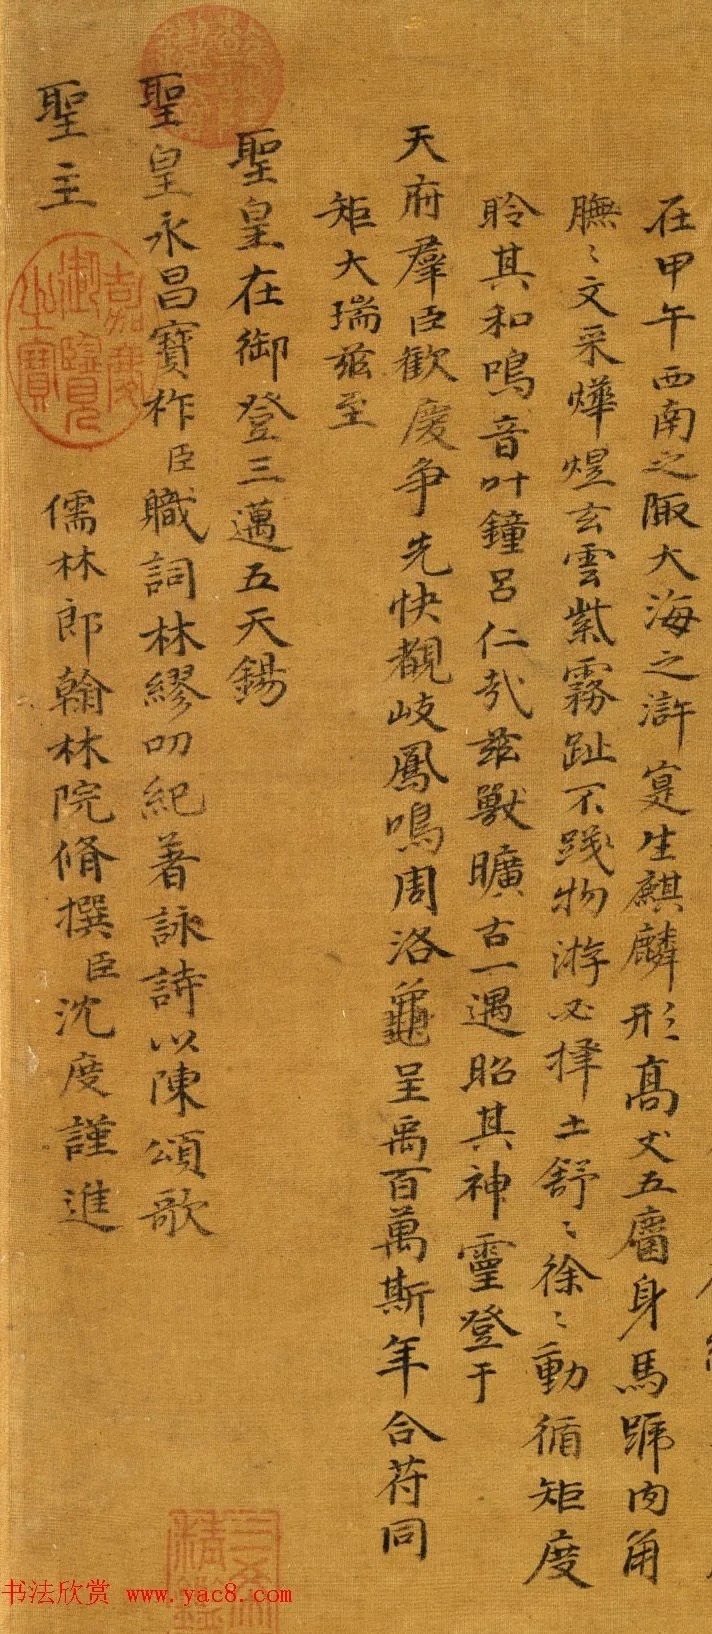 在甲午西南之陬大海之滸寔生麒麟形高丈五麕身馬蹄肉角
膴〻文采燁煜玄雲紫霧趾不踐物游必擇土舒〻徐〻動循矩度
聆其和鳴音叶鐘呂仁哉茲獸曠古一遇昭其神靈登于
天府羣臣歡慶爭先快覩岐鳳鳴周洛龜呈禹百萬斯年合符同
矩大瑞茲至
聖皇在御登三邁五天錫
聖皇永昌寶祚臣職詞林繆叨紀著詠詩以陳頌歌
聖主
儒林郎翰林院脩撰臣沈度謹進
嘉慶御覽之寶
三希堂精鑑
书法欣赏 www.yac8.com